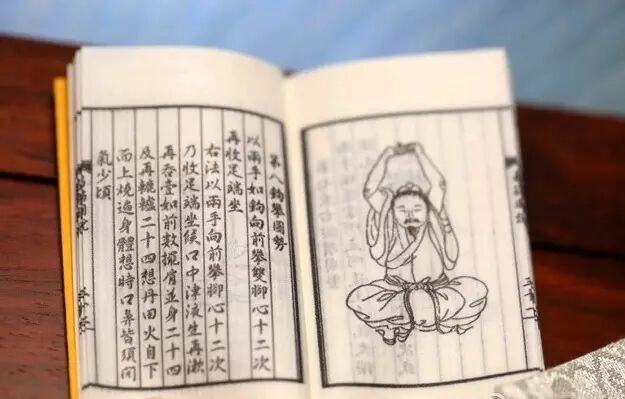 第八鉤攀圖勢
以兩手如鉤向前攀雙腳心十二次
再收足端坐
右法以兩手向前攀腳心十二次
乃收足端坐候口中津液生再漱
再吞壹如前數擺肩並身二十四
及再轆轤二十四想丹田火自下
而上燒遍身體想時口鼻皆須閉
氣少頃